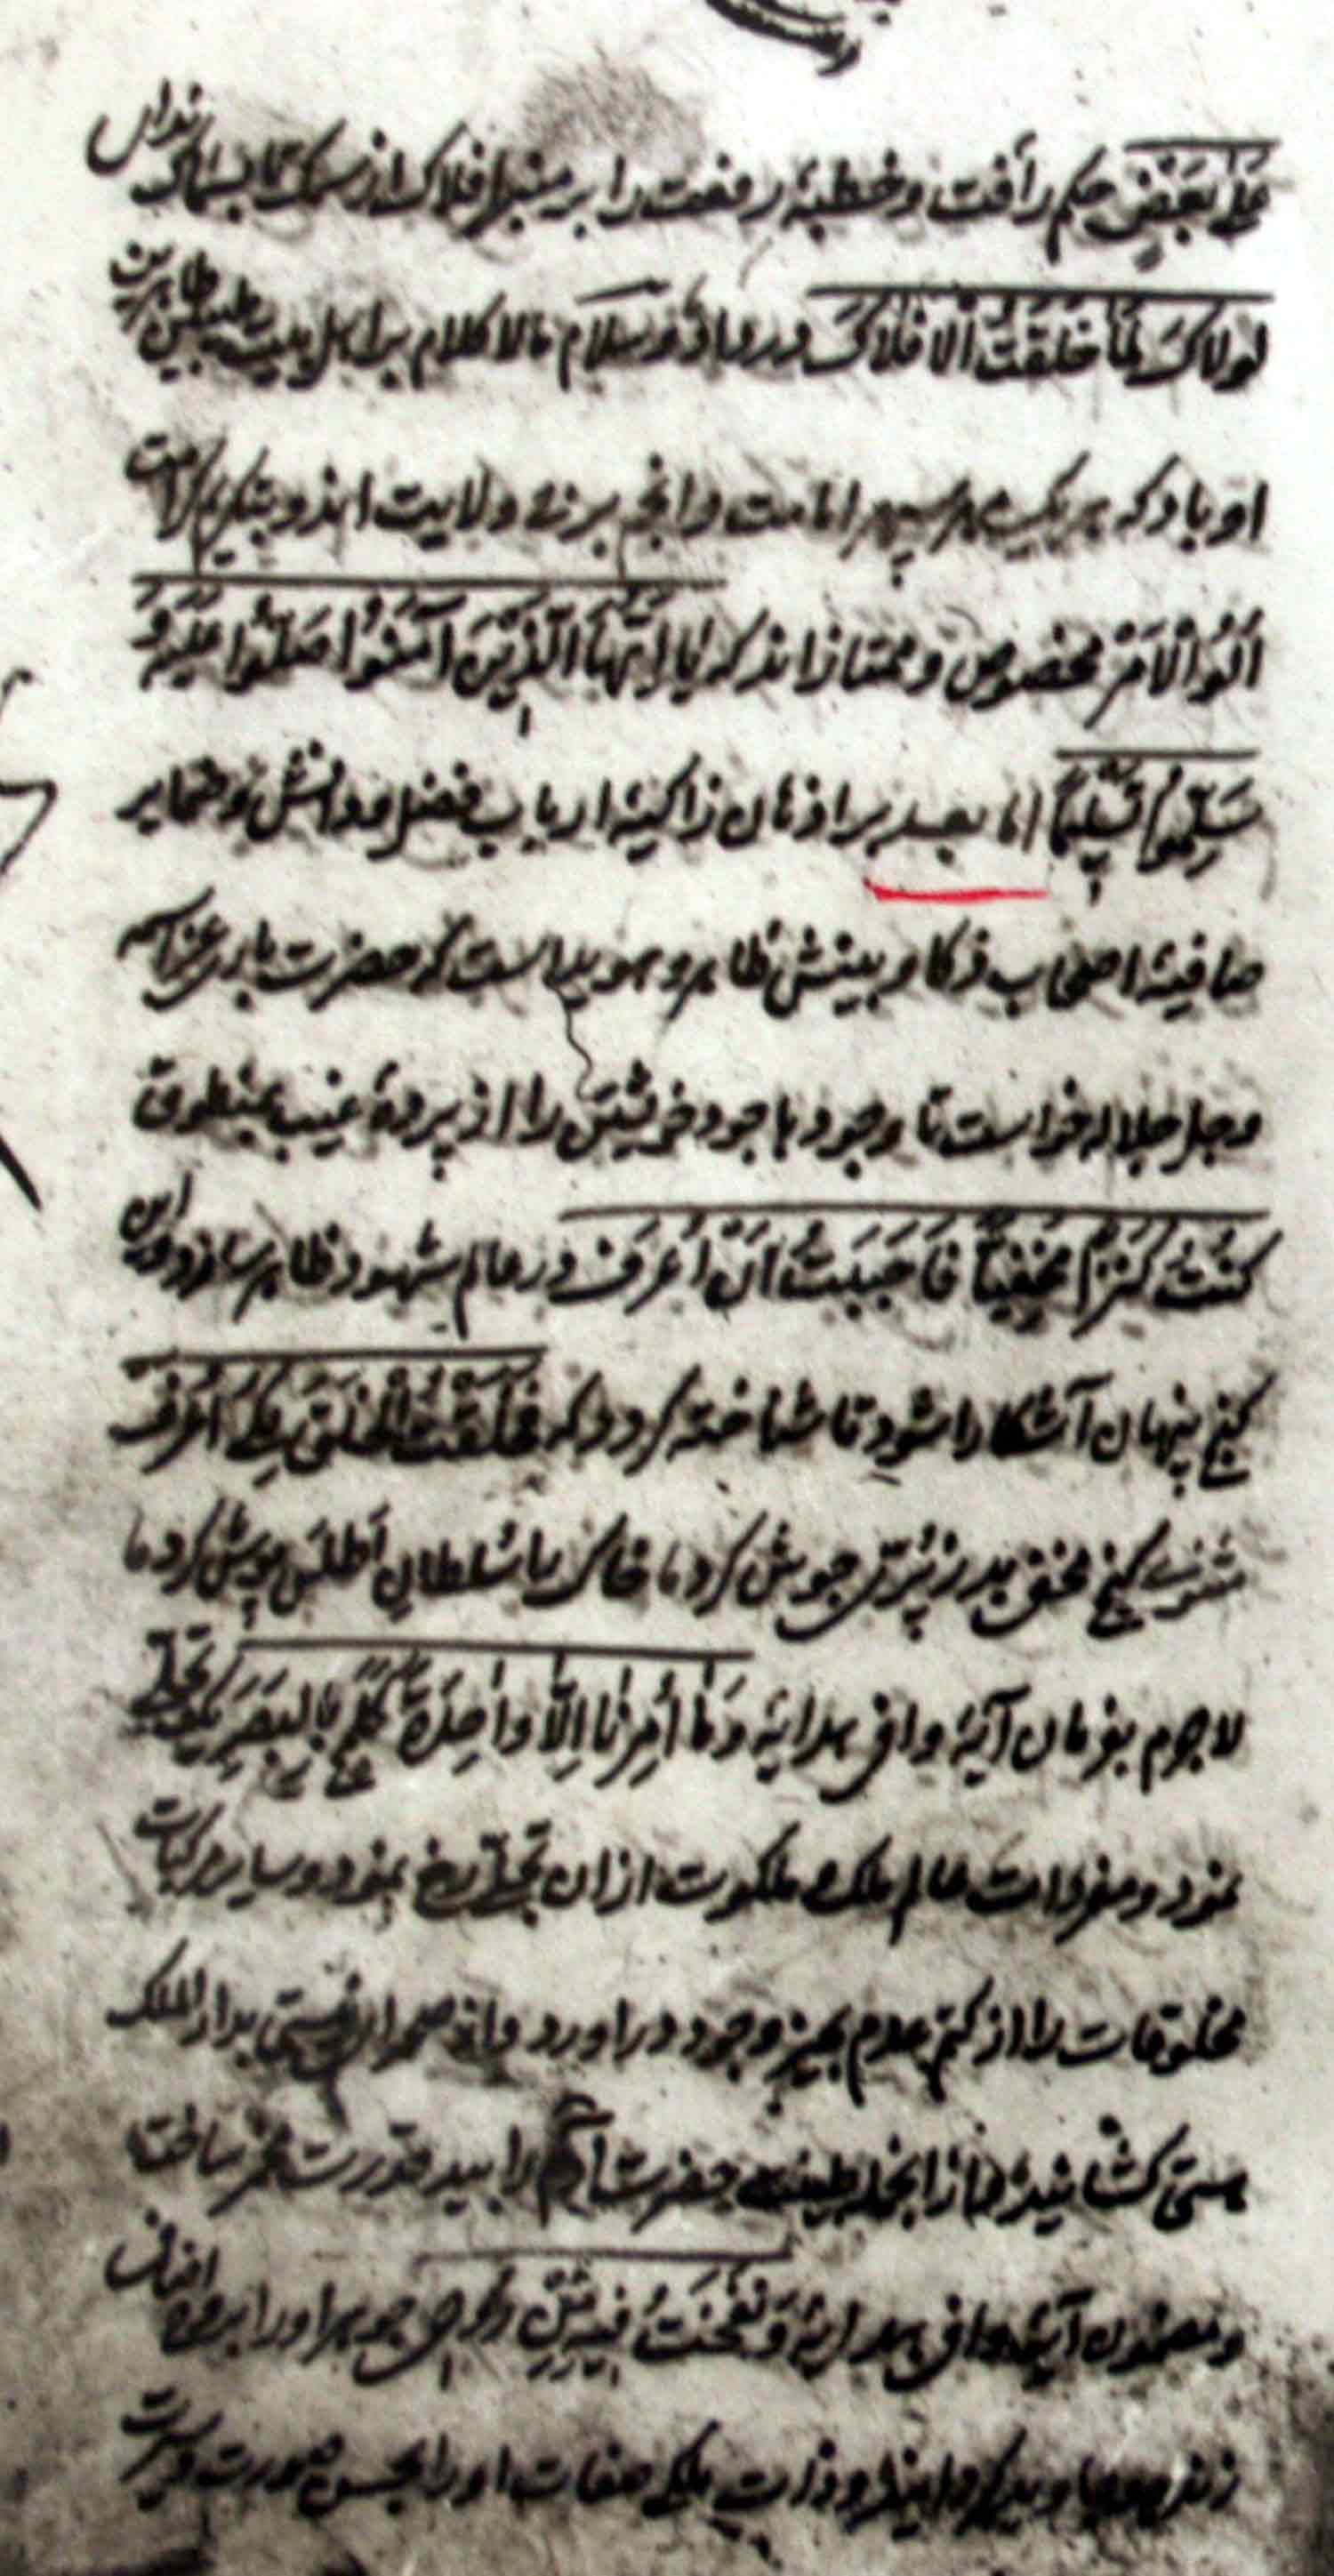 عَلىٰ بَعْضٍ حکم رأفت و خطبهٔ رفعت را بر منبر افلاک از سمک تا بسماک
لَوْلاکَ لَمٰا خَلَقْتُ الْاَفْلاکَ درود و سلام مالاکلام بر اهل بیت طیبین طاهرین
او باد که هر یک سپهر امامت و انجم برج ولایت اند و بتکریم کرامت
اُلُوا الْاَمْر مخصوص و ممتازاند که یٰا اَیُّهَا الَّذِیْنَ آمَنُوْا صَلُّوْا عَلَیْهِ وَ
سَلِّمُوْا تَسْلِیْمًا اما بعد بر اذهان زاکیهٔ ارباب فضل و دانش و ضمایر
صافیهٔ اصحاب ذکا و بینش ظاهر و هویداست که حضرت باری عز اسمه
و جل جلاله خواست تا وجود باجود خویشتن را از پردهٔ غیب بمنطوق
کُنْتُ کَنْزًا مَخْفِیًّا فَاَحْبَبْتُ اَنْ اُعْرَفَ در عالم شهود ظاهر سازد و این
گنج پنهان آشکارا شود تا شناخته گردد که فَخَلَقْتُ الْخَلْقَ لِکَیْ اُعْرَفَ
گنج مخفی بد ز پری جوش کرد خاک را سلطان اطلس پوش کرد
لاجرم بفرمان آیهٔ وافی هدایه وَمٰا اَمْرُنٰا اِلّٰا وٰاحِدَةٌ کَلَمْحٍ بِالْبَصَرِ یک تجلی
نمود و مفردات عالم ملک و ملکوت ازان تجلی رخ نمود و سایر مرکبات
مخلوقات را از کتم عدم بحیز وجود در آورد و از صحرای نیستی بدار الملک
هستی کشانید حضرت آدم را بید قدرت
و مضمون آیهٔ وافی هدایه وَ نَفَخْتُ فِیْهِ مِنْ رُّوْحِیْ جوهر او را
زندهٔ ذات بلکه صفات او را بحسن صورت و سیرت